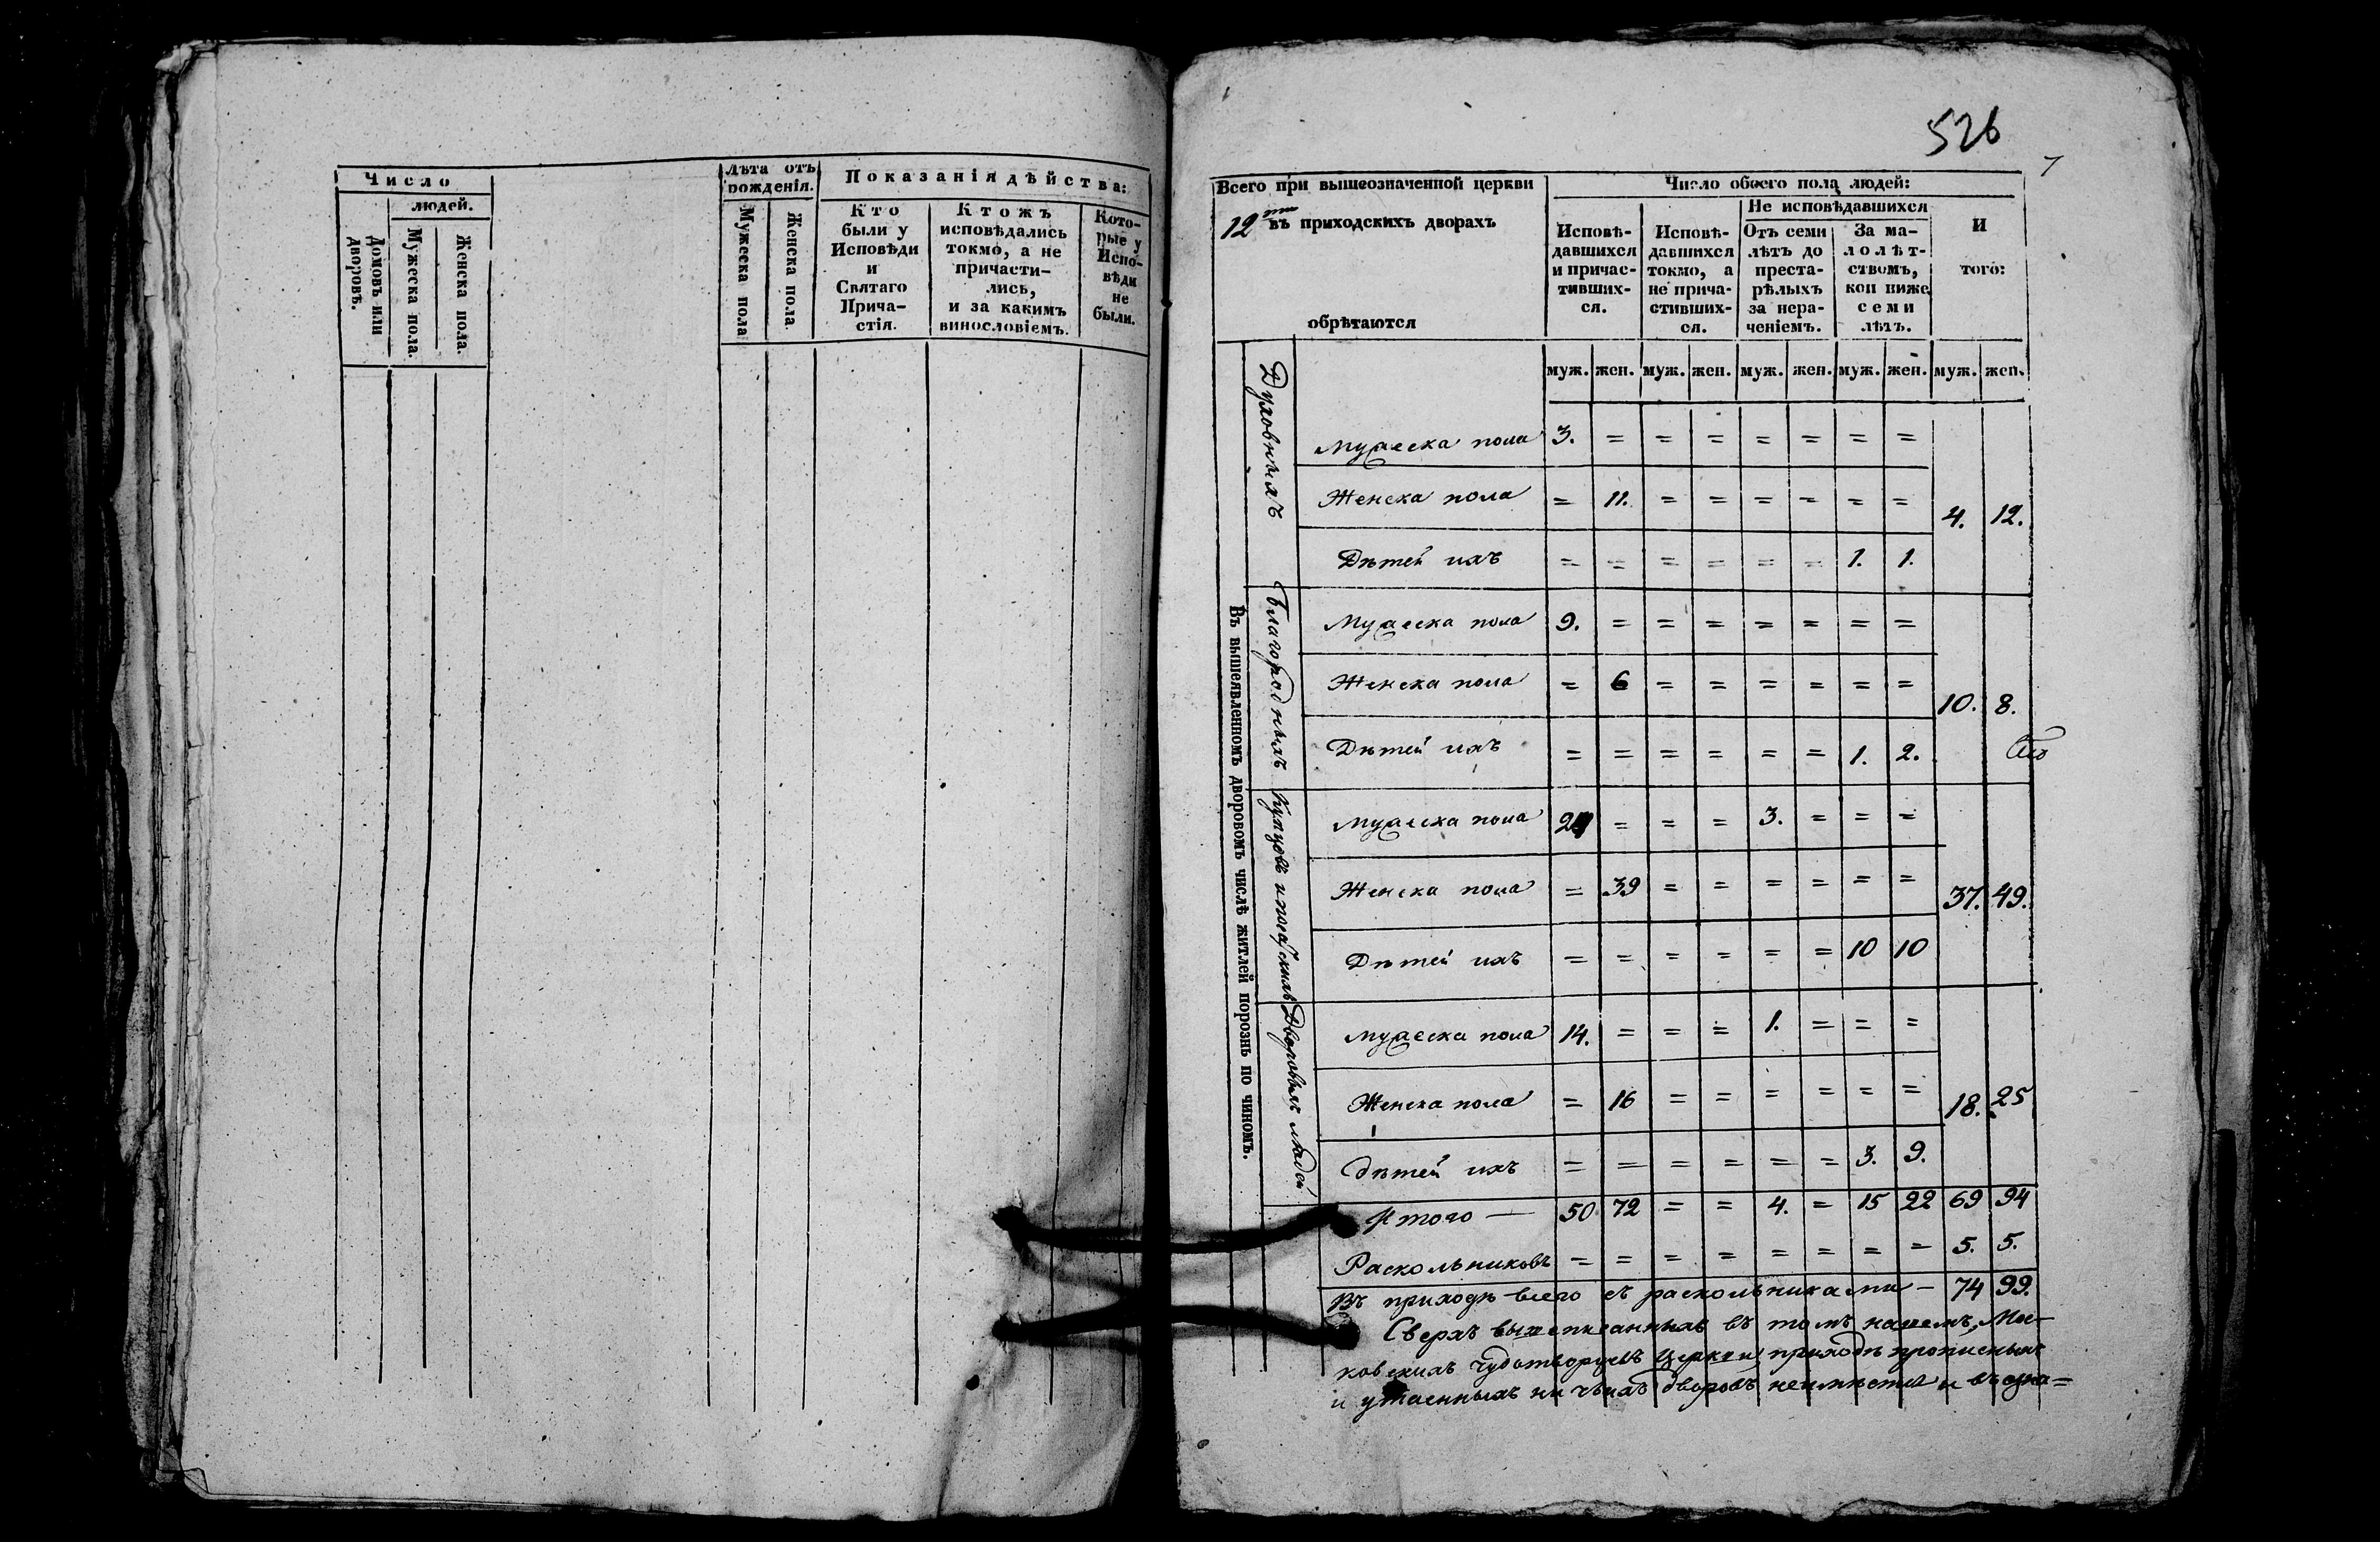 Число
людей.
Домовъ или дворовъ.
Мужеска пола.
Женска пола.
Лѣта отъ рожденія.
Мужеска пола
Женска пола.
Показанія дѣйства:
Кто
были у
Исповѣди
и
Святаго
Прича-
стія.
Ктожъ
исповѣдались
токмо, а не
причасти-
лись,
и за какимъ
винословіемъ.
Кото-
рые у
Испо-
вѣди
не
были.
526
Всего при вышеозначенной церкви
12ти въ приходскихъ дворахъ
обрѣтаются
Число обоего пола людей:
Исповѣ-
давшихся
и причас-
тивших-
ся.
Исповѣ-
давшихся
токмо, а
не прича-
стивших-
ся.
Не исповѣдавшихся
Отъ семи
лѣтъ до
преста-
рѣлыхъ
за нера-
ченіемъ.
За ма-
лолѣт-
ствомъ,
кои ниже
семи
лѣтъ.
И
того:
муж. жен. муж. жен. муж. жен. муж. жен. муж. жен.
Въ вышеявленномъ дворовомъ числѣ житлей порознь по чиномъ.
Духовныхъ
Мужеска пола 3. = = = = = = =
Женска пола = 11. = = = = = =
4. 12.
Дѣтей ихъ = = = = = = 1. 1.
Благородныхъ
Мужеска пола 9. = = = = = = =
Женска пола = 6 = = = = = =
10. 8.
Дѣтей ихъ = = = = = = 1. 2.
Купцовъ и посадскихъ
Мужеска пола 24 = = = 3. = = =
Женска пола = 39 = = = = = =
37. 49.
Дѣтей ихъ = = = = = = 10 10
Дворовыхъ людей
Мужеска пола 14. = = = 1. = = =
Женска пола = 16 = = = = = =
18. 25
Дѣтей ихъ = = = = = = 3. 9.
Итого — 50 72 = = 4. = 15 22 69 94
Раскольниковъ = = = = = = = = 5. 5.
Въ приходѣ всего съ раскольниками — 74 99.
Сверхъ вышеписанныхъ въ томъ нашемъ, Мос-
ковскихъ Чудотворцевъ церкви, приходѣ прописныхъ
и утаенныхъ ни чьихъ дворовъ неимѣется и въ